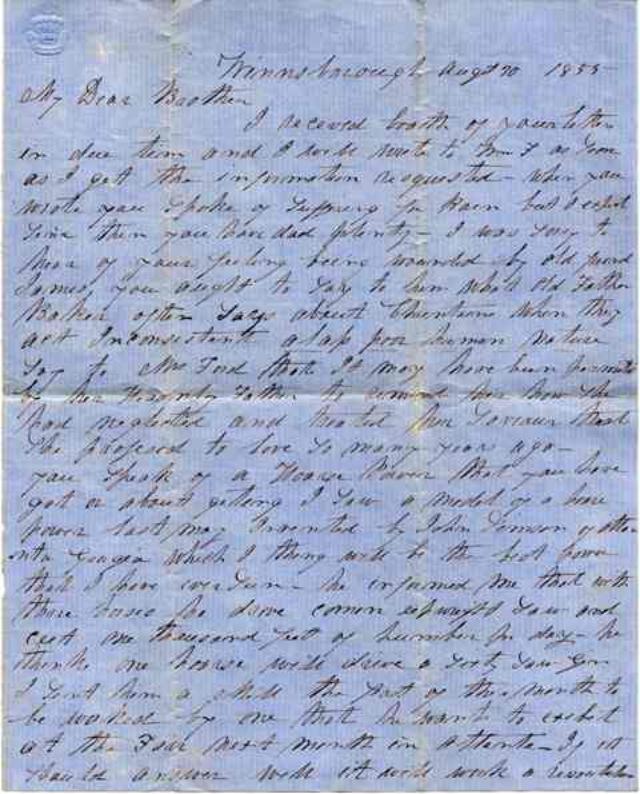 Winnsborough Augst 20 1855
My Dear Brother
I receved booth of your letters
in due time and I will write to as soon
as I get the information requested - when you
wrote you spoke of suffering for Rain but I expect
since then you have had plenty - I was sorry to
hear of your feeling being wounded by old
James, you aught to say to him what Old Father
Baker often says about Christians when they
act Inconsistant alas poor human nature
Say to Mrs Ford that It may have been permitted
by her Heavenly Father to remind her how she
had neglected and treated her Saviour that
she professed to love so many years ago -
you speak of a Hoarse Power that you have
got or about geting I saw a model of a horse
power last may Invented by John of Atla
nta Geogea which I thing will be the best power
that I have ever seen - he informed me that with
three horses he drove comon upwright saw and
cut one thousand feet of lumber per day - he
thinks one hoarse will drive a forty saw gin
I sent him a mill the first of this month to
be worked by one that he want to exibit
at the Fair next month in Atlanta - If it
should answer well it will work a revolution